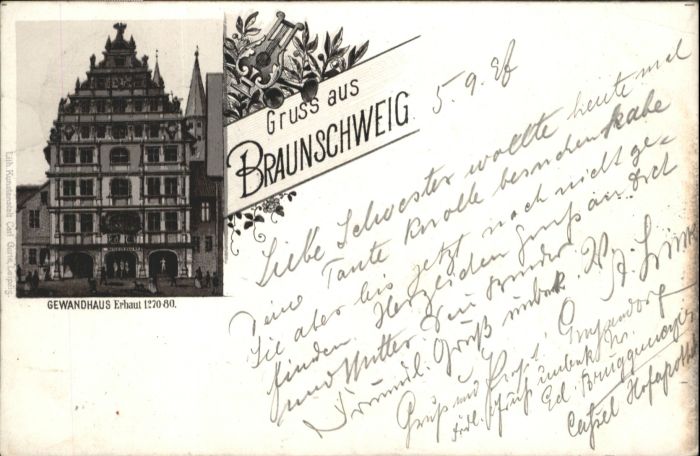 Gruss aus
BRAUNSCHWEIG
Lith. Kunstanstalt Carl Garte, Leipzig.
GEWANDHAUS Erbaut 1270-80.
5. 9. 96
Liebe Schwester wollte heute mal
Deine Tante Knolle besuchen habe
Sie aber bis jetzt noch nicht ge-
finden. Herzlichen Gruß an Dich
und Mutter. Dein Bruder
Freundl. Gruß unbek. W.
Gruß und
frdl. Gruß unbek.
Ed. Brüggemeyer
Cassel Hofapoth